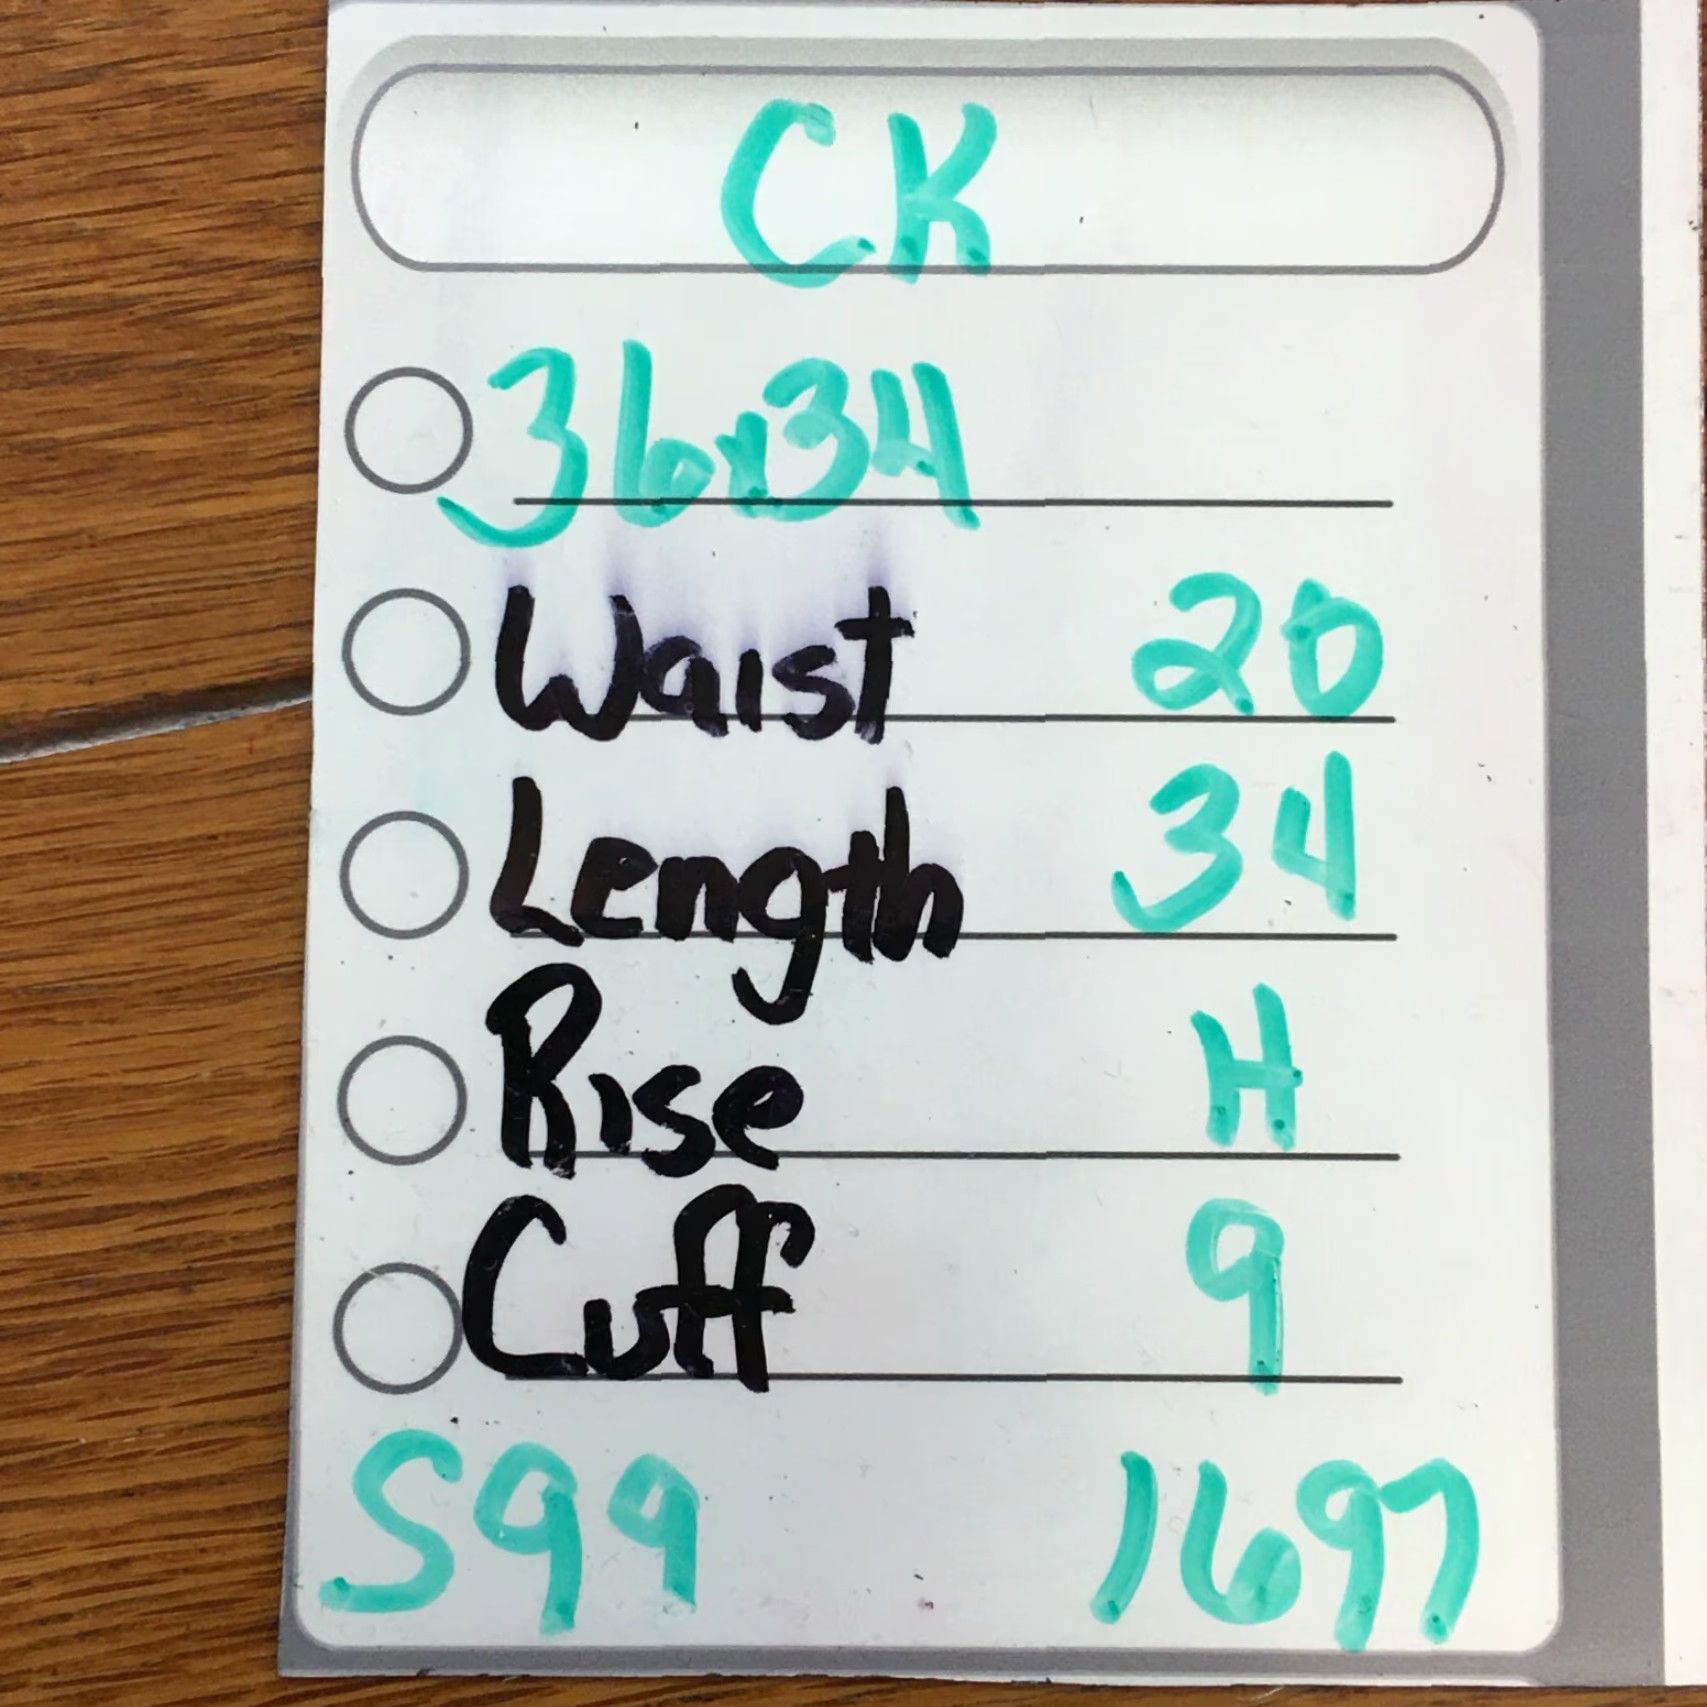 CK
36x34
Waist 20
Length 34
Rise H
Cuff 9
S99 1697